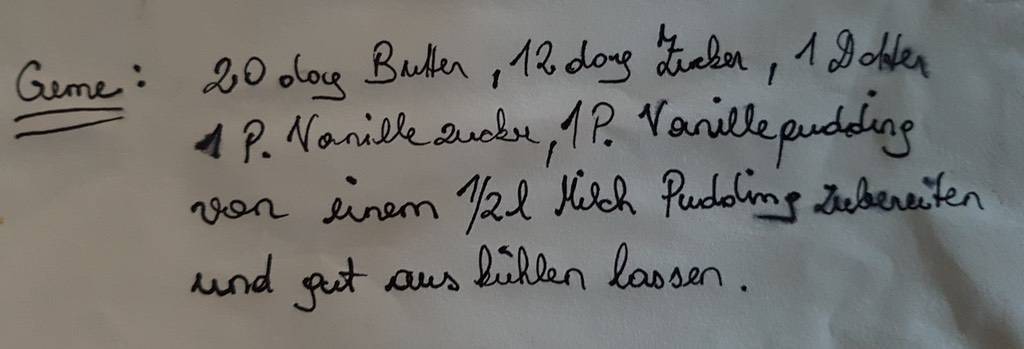 Creme: 20 dag Butter, 12 dag Zucker, 1 Dotter
1 P. Vanillezucker, 1 P. Vanillepudding
von einem 1/2 l Milch Pudding zubereiten
und gut aus kühlen lassen.